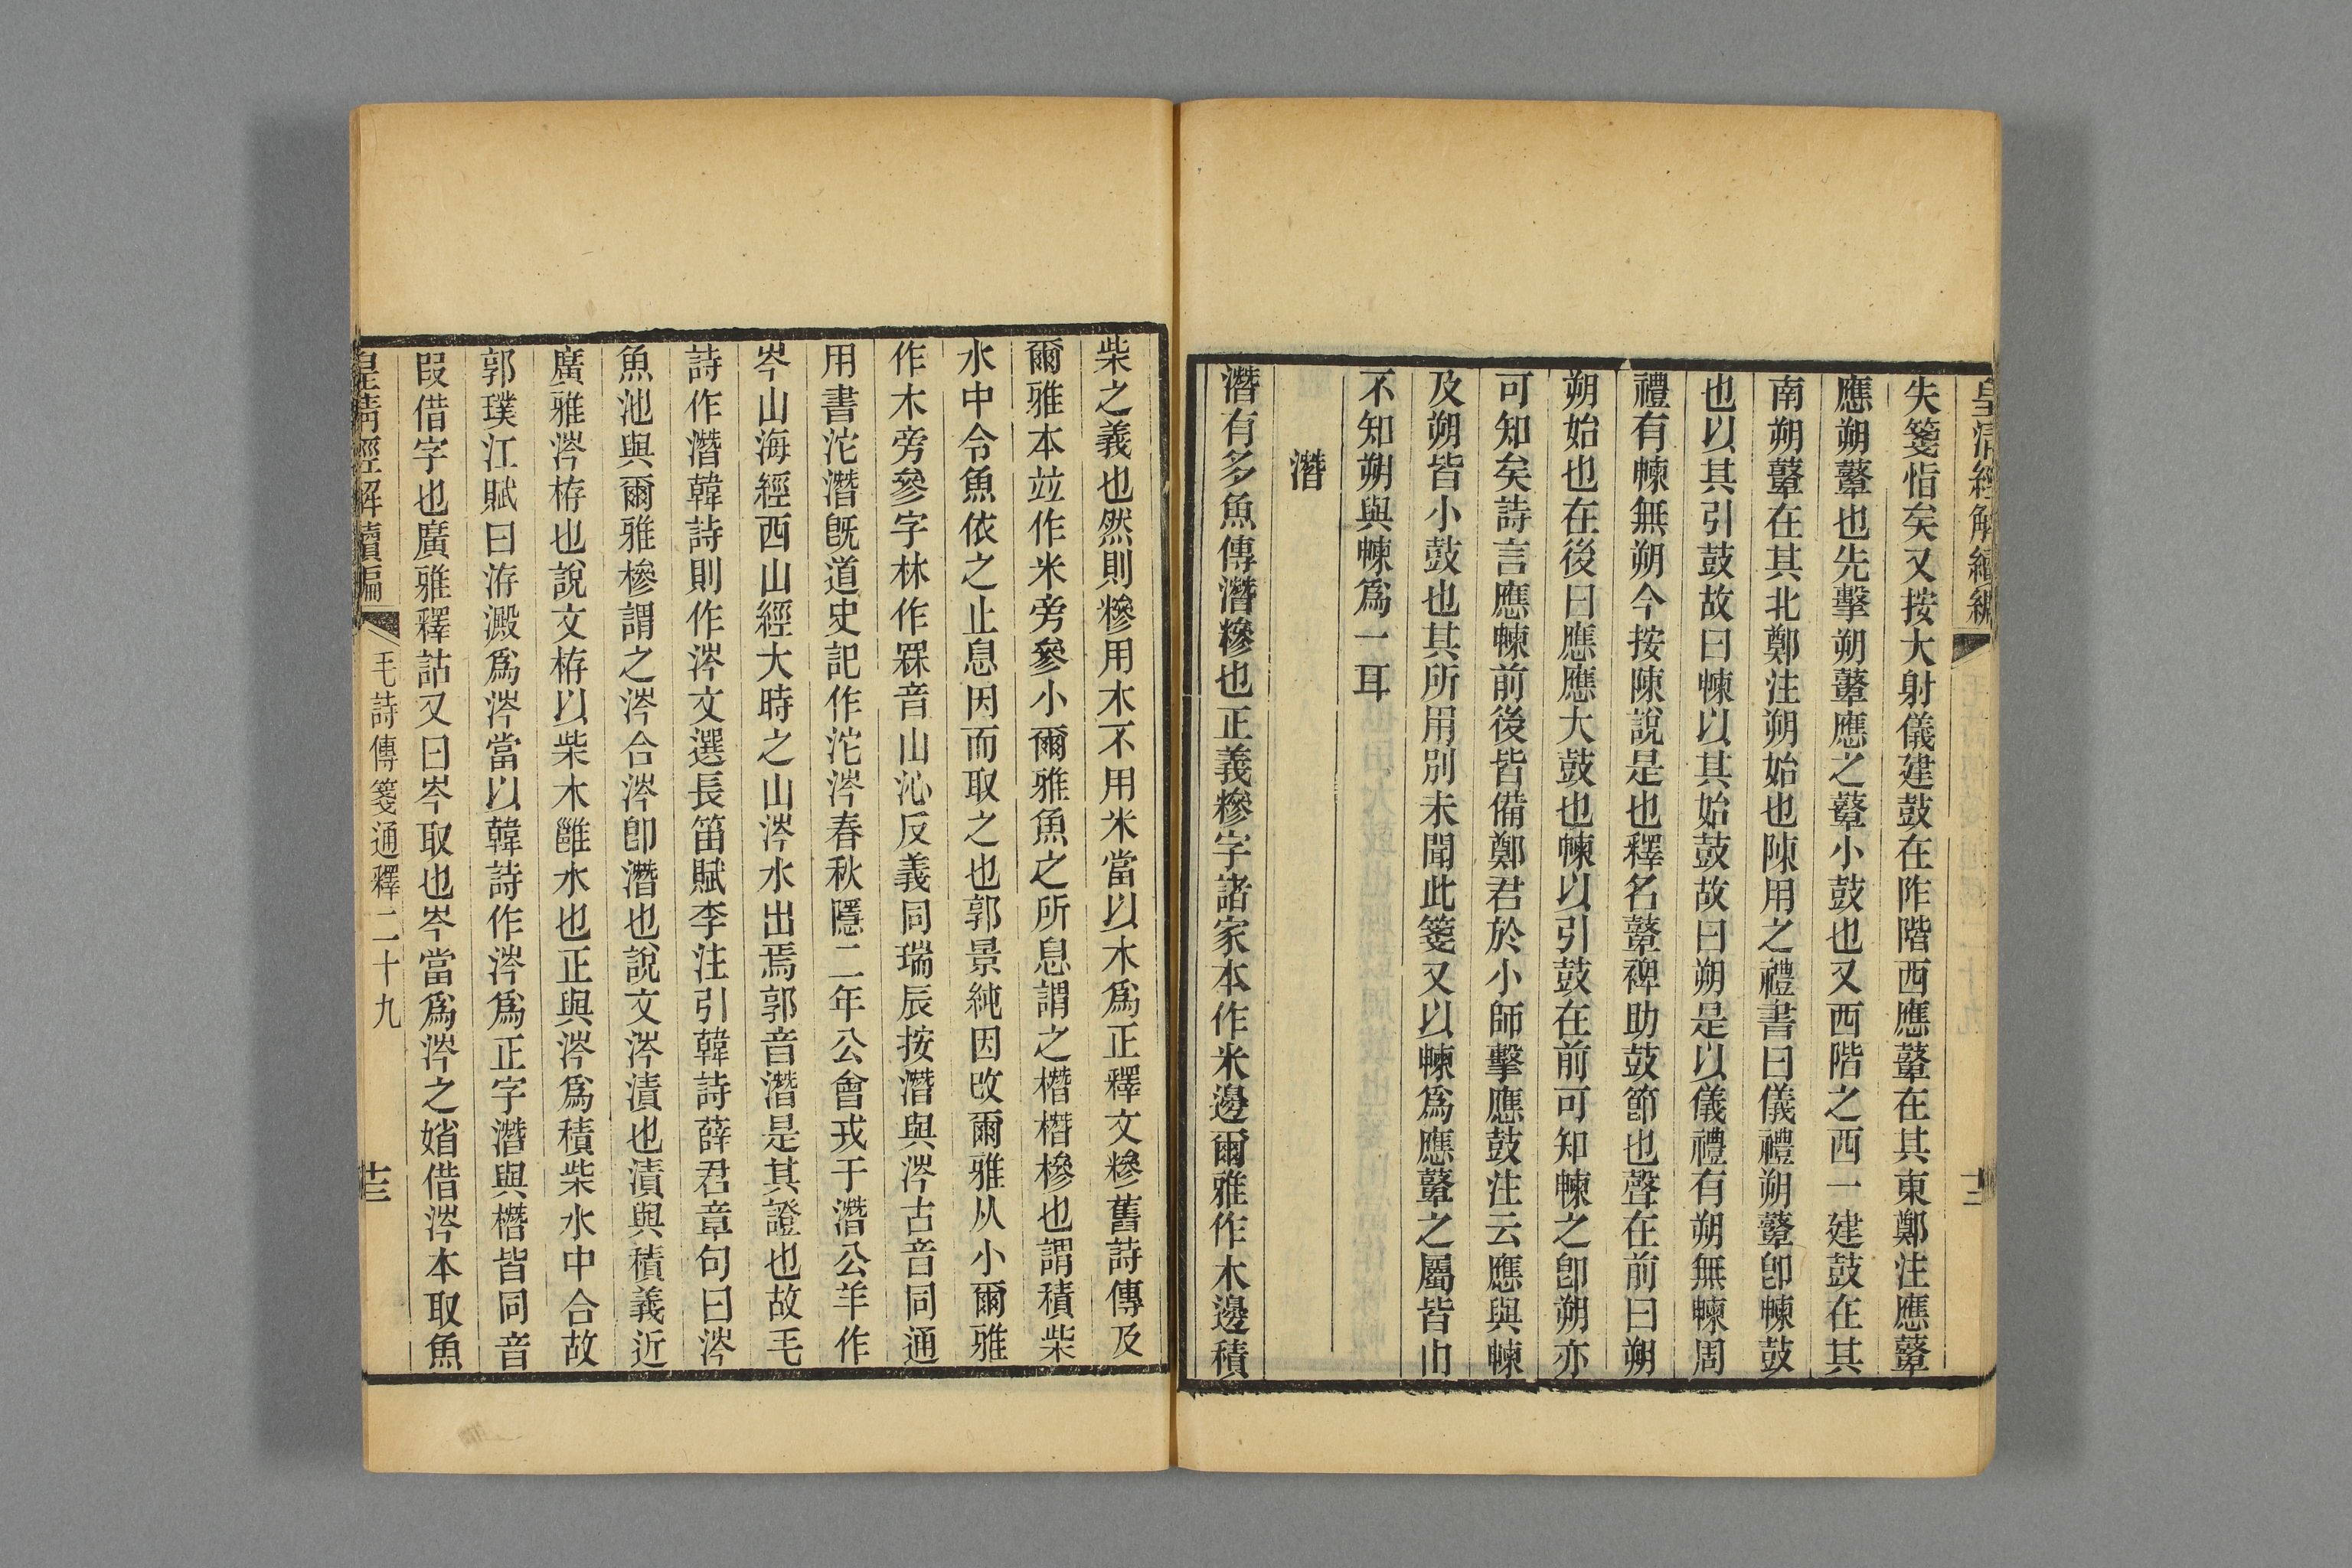 皇清經解續編
失箋恉矣又按大射儀建鼓在阼階西應鼙在其東鄭注應鼙
應朔鼙也先擊朔鼙應之鼙小鼓也又西階之西一建鼓在其
南朔鼙在其北鄭注朔始也陳用之禮書曰儀禮朔鼙卽朄鼓
也以其引鼓故曰朄以其始鼓故曰朔是以儀禮有朔無朄周
禮有朄無朔今按陳說是也釋名鼙裨助鼓節也聲在前曰朔
朔始也在後曰應應大鼓也朄以引鼓在前可知朄之卽朔亦
可知矣詩言應朄前後皆備鄭君於小師擊應鼓注云應與朄
及朔皆小鼓也其所用別未聞此箋又以朄爲應鼙之屬皆由
不知朔與朄爲一耳
潛
潛有多魚傳潛糝也正義糝字諸家本作米邊爾雅作木邊積
柴之義也然則糝用木不用米當以木爲正釋文糝舊詩傳及
爾雅本竝作米旁參小爾雅魚之所息謂之橬橬槮也謂積柴
水中令魚依之止息因而取之也郭景純因改爾雅从小爾雅
作木旁參字林作罧音山沁反義同瑞辰按潛與涔古音同通
用書沱潛旣道史記作沱涔春秋隱二年公會戎于潛公羊作
岑山海經西山經大時之山涔水出焉郭音潛是其證也故毛
詩作潛韓詩則作涔文選長笛賦李注引韓詩薛君章句曰涔
魚池與爾雅槮謂之涔合涔卽潛也說文涔漬也漬與積義近
廣雅涔栫也說文栫以柴木雝水也正與涔爲積柴水中合故
郭璞江賦曰洊澱爲涔當以韓詩作涔爲正字潛與橬皆同音
叚借字也廣雅釋詁又曰岑取也岑當爲涔之媘借涔本取魚
皇清經解續編
毛詩傳箋通釋二十九
十三